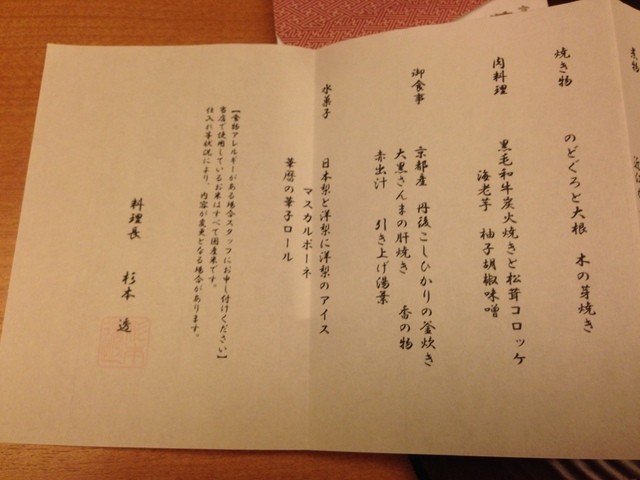 焼き物
のどぐろと大根 木の芽焼き
肉料理
黒毛和牛炭火焼きと松茸コロッケ
海老芋 柚子胡椒味噌
御食事
京都産 丹後こしひかりの釜炊き
大黒さんまの肝焼き 香の物
赤出汁 引き上げ湯葉
水菓子
日本梨と洋梨に洋梨のアイス
マスカルポーネ
華暦の華子ロール
【食物アレルギーがある場合スタッフにお申し付けください】
当店で使用しているお米はすべて国産米です。
仕入れ等状況により、内容が変更となる場合があります。
料理長 杉本 透